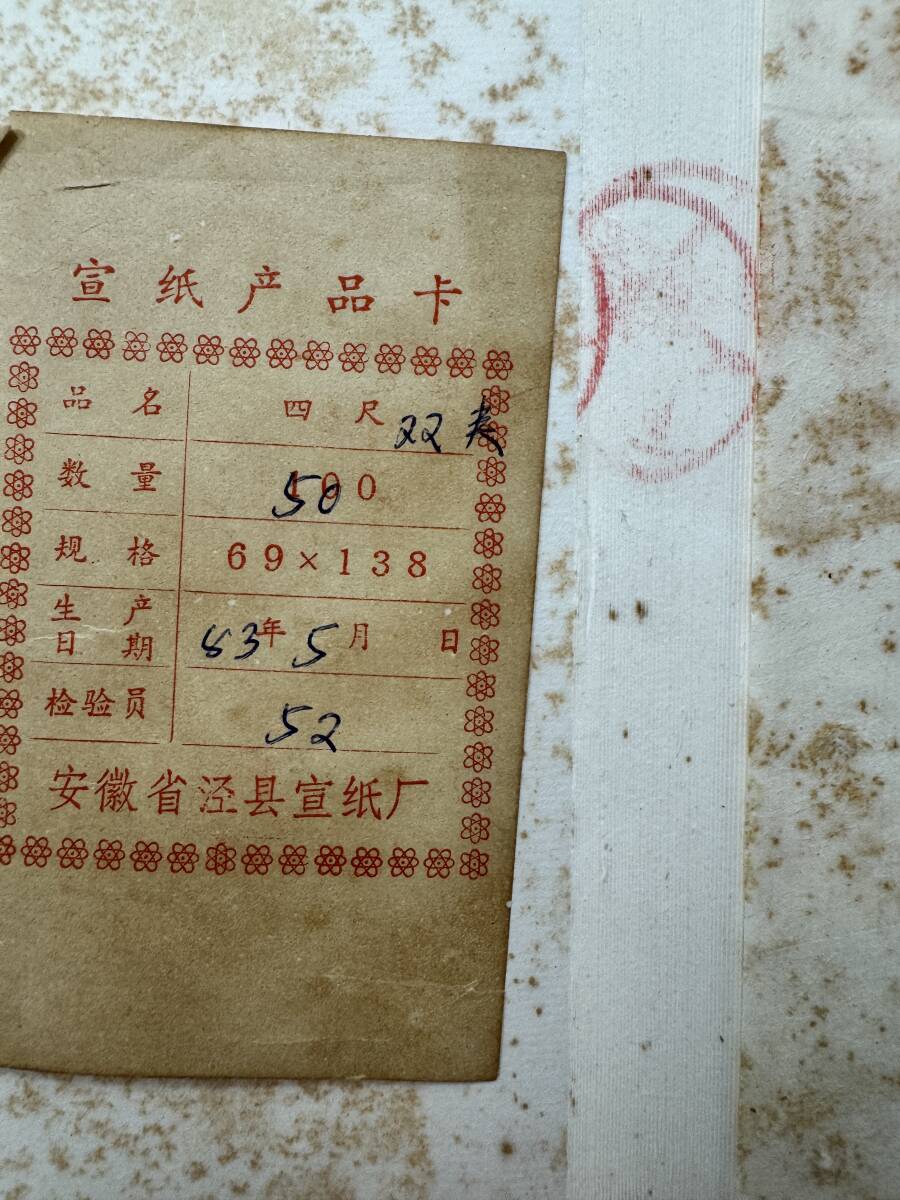 宣纸产品卡
品名 四尺 双夹
数量 100 50
规格 69×138
生产日期 83年5月 日
检验员 52
安徽省泾县宣纸厂